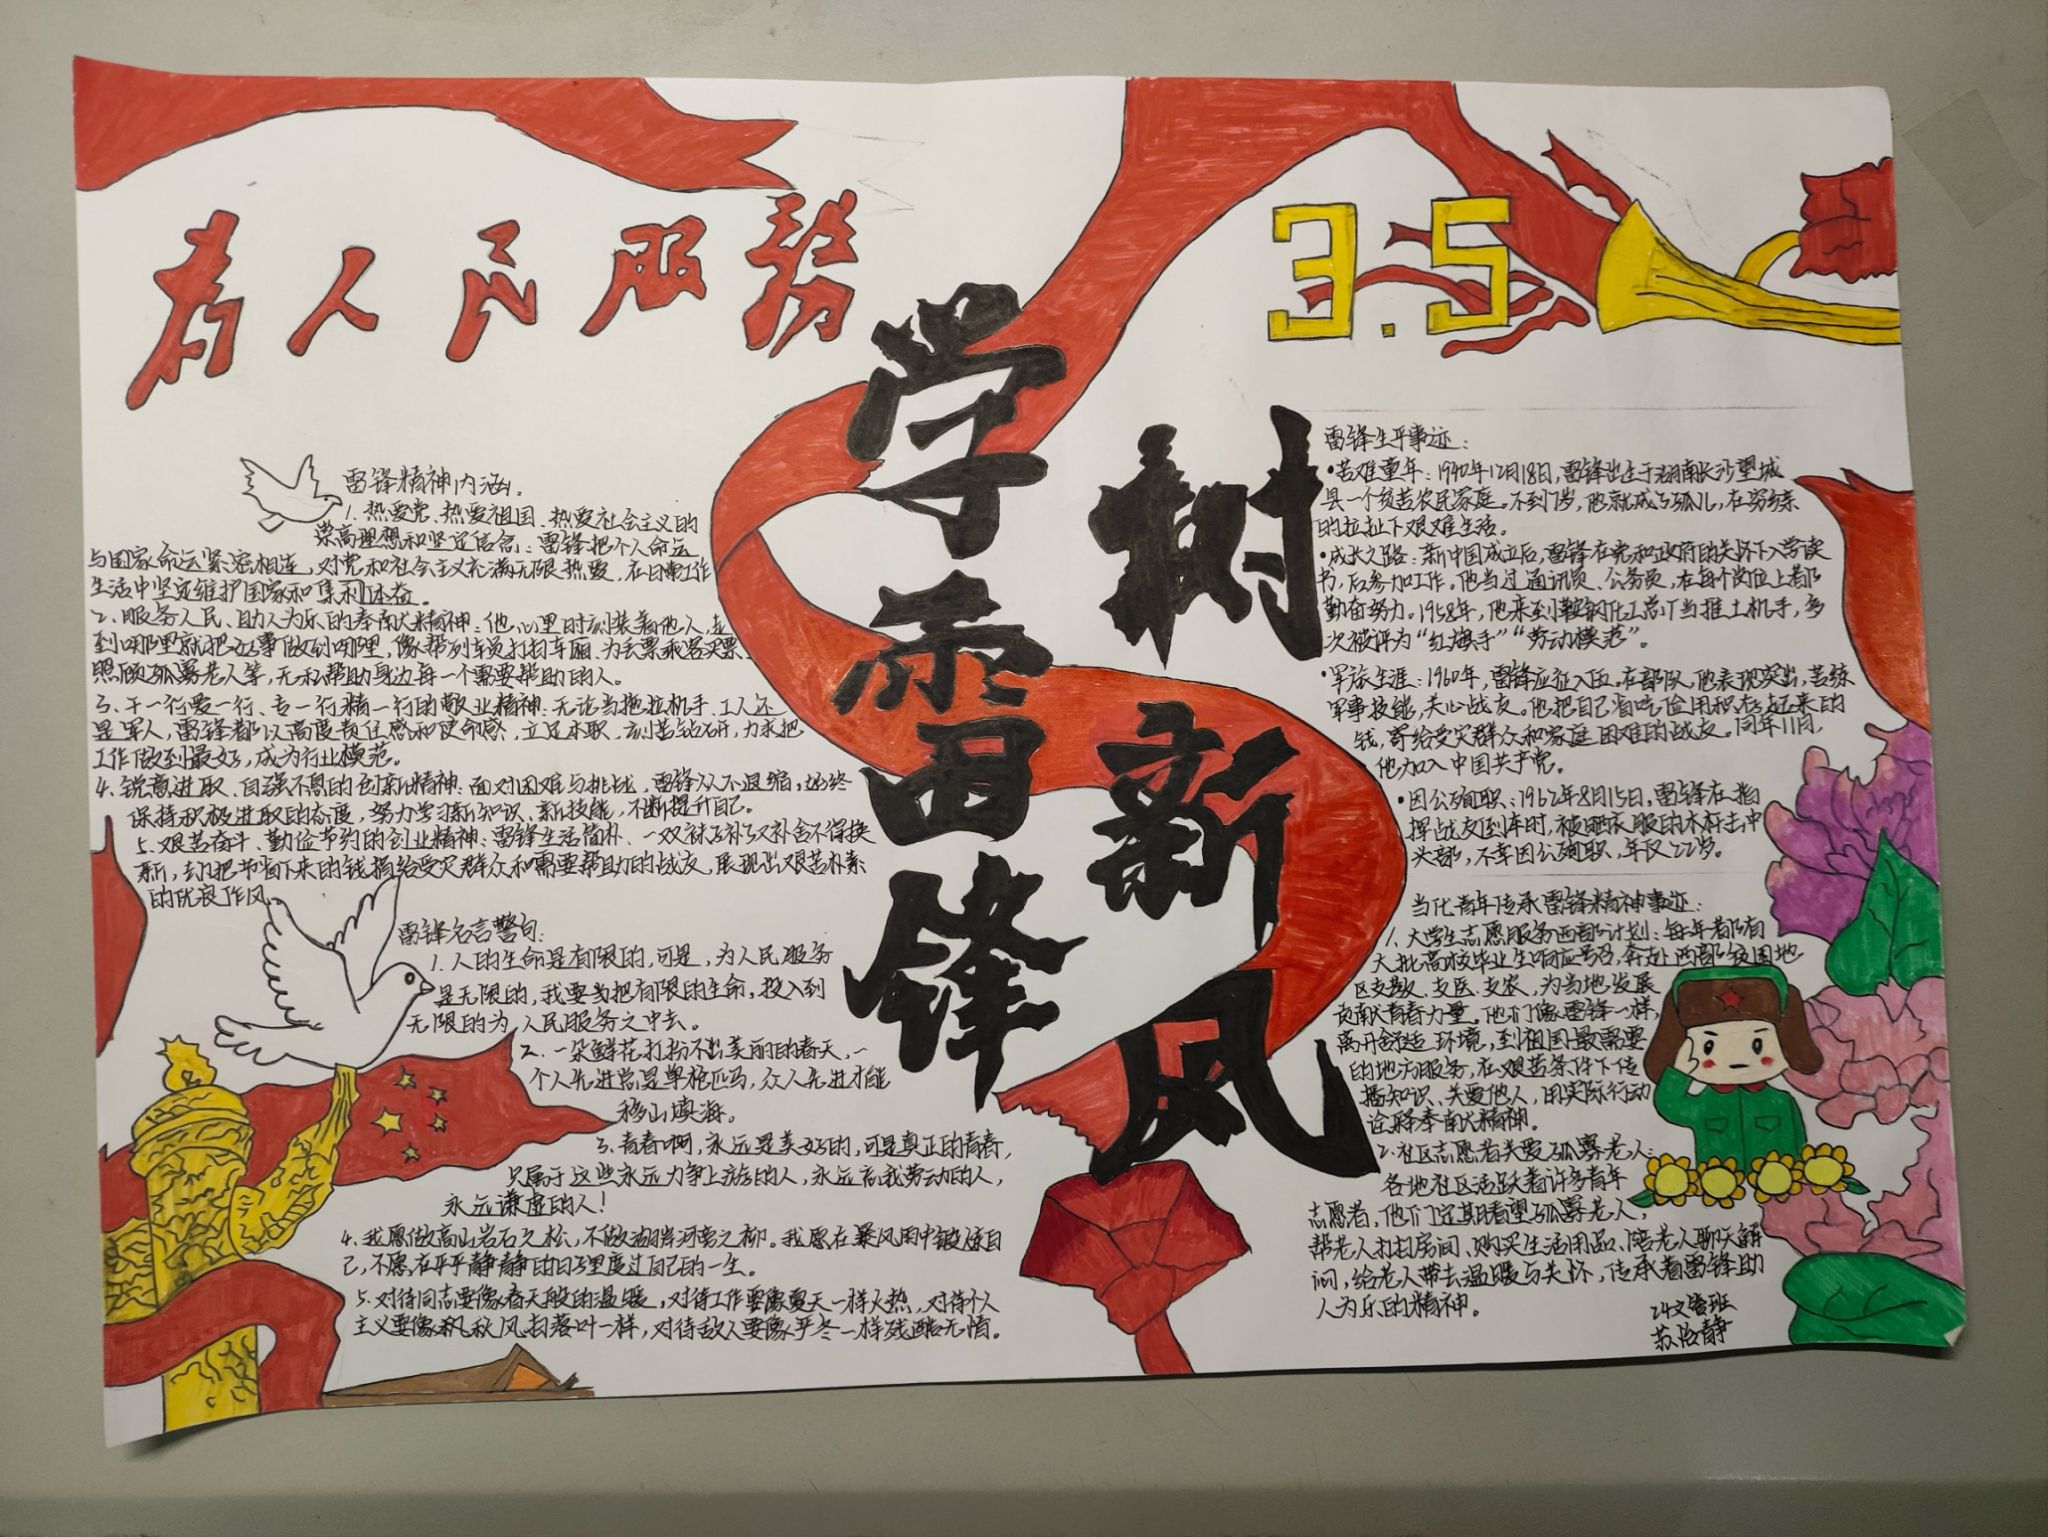 为人民服务
3.5
学雷锋
树新风
雷锋精神内涵:
1.热爱党、热爱祖国、热爱社会主义的
崇高理想和坚定信念:雷锋把个人命运
与国家命运紧密相连,对党和社会主义充满无限热爱,在日常工作
生活中坚定维护国家和集利体益。
2、服务人民、助人为乐的奉献精神:他心里时刻装着他人,走
到哪里就把好事做到哪里,像帮列车员打扫车厢、为丢票乘客买票、
照顾孤寡老人等,无私帮助身边每一个需要帮助的人。
3、干一行爱一行、专一行精一行的敬业精神:无论当拖拉机手、工人还
是军人,雷锋都以高度责任感和使命感,立足本职,刻苦钻研,力求把
工作做到最好,成为行业模范。
4、锐意进取、自强不息的创新精神:面对困难与挑战,雷锋从不退缩,始终
保持积极进取的态度,努力学习新知识、新技能,不断提升自己。
5、艰苦奋斗、勤俭节约的创业精神:雷锋生活简朴、一双袜子补了又补舍不得换
新,却把节省下来的钱捐给受灾群众和需要帮助的战友,展现出艰苦朴素
的优良作风。
雷锋名言警句:
1.人的生命是有限的,可是,为人民服务
是无限的,我要当把有限的生命,投入到
无限的为人民服务之中去。
2.一朵鲜花打扮不出美丽的春天,一
个人先进总是单枪匹马,众人先进才能
移山填海。
3.青春啊,永远是美好的,可是真正的青春,
只属于这些永远力争上游的人,永远忘我劳动的人,
永远谦虚的人!
4、我愿做高山岩石之松,不做湖岸河旁之柳。我愿在暴风雨中锻炼自
己,不愿在平平静静的日子里度过自己的一生。
5.对待同志要像春天般的温暖,对待工作要像夏天一样火热,对待个人
主义要像秋秋风扫落叶一样,对待敌人要像严冬一样残酷无情。
雷锋生平事迹:
•苦难童年:1940年12月18日,雷锋出生于湖南长沙望城
县一个贫苦农民家庭。不到7岁,他就成了孤儿,在穷乡亲
的拉扯下艰难生活。
•成长之路:新中国成立后,雷锋在党和政府的关怀下入学读
书,后参加工作。他当过通讯员、公务员,在每个岗位上都
勤奋努力。1958年,他来到鞍钢化工总厂当推土机手,多
次被评为“红旗手”“劳动模范”。
•军旅生涯:1960年,雷锋应征入伍。在部队,他表现突出,苦练
军事技能,关心战友。他把自己省吃俭用积存起来的
钱,寄给受灾群众和家庭困难的战友。同年11月,
他加入中国共产党。
•因公殉职:1962年8月15日,雷锋在指
挥战友倒车时,被晒衣服的木杆击中
头部,不幸因公殉职,年仅22岁。
当代青年传承雷锋精神事迹:
1、大学生志愿服务西部计划:每年都有
大批高校毕业生响应号召,奔赴西部贫困地
区支教、支医、支农,为当地发展
贡献青春力量。他们像雷锋一样,
离开舒适环境,到祖国最需要
的地方服务,在艰苦条件下传
播知识、关爱他人,用实际行动
诠释奉献精神。
2.社区志愿者关爱孤寡老人:
各地社区活跃着许多青年
志愿者,他们定期看望孤寡老人,
帮老人打扫房间、购买生活用品、陪老人聊天解
闷,给老人带去温暖与关怀,传承着雷锋助
人为乐的精神。
24文管班
苏静